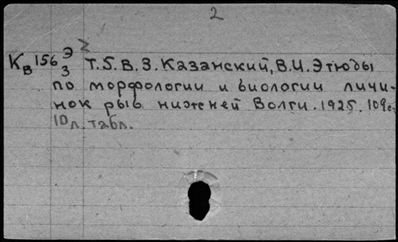 2
Кв 156 Э/3 2 Т.5.В.3. Казанский, В.И. Этюды
по морфологии и биологии личи-
нок рыб нижней Волги. 1925. 109с.
10 л. табл.